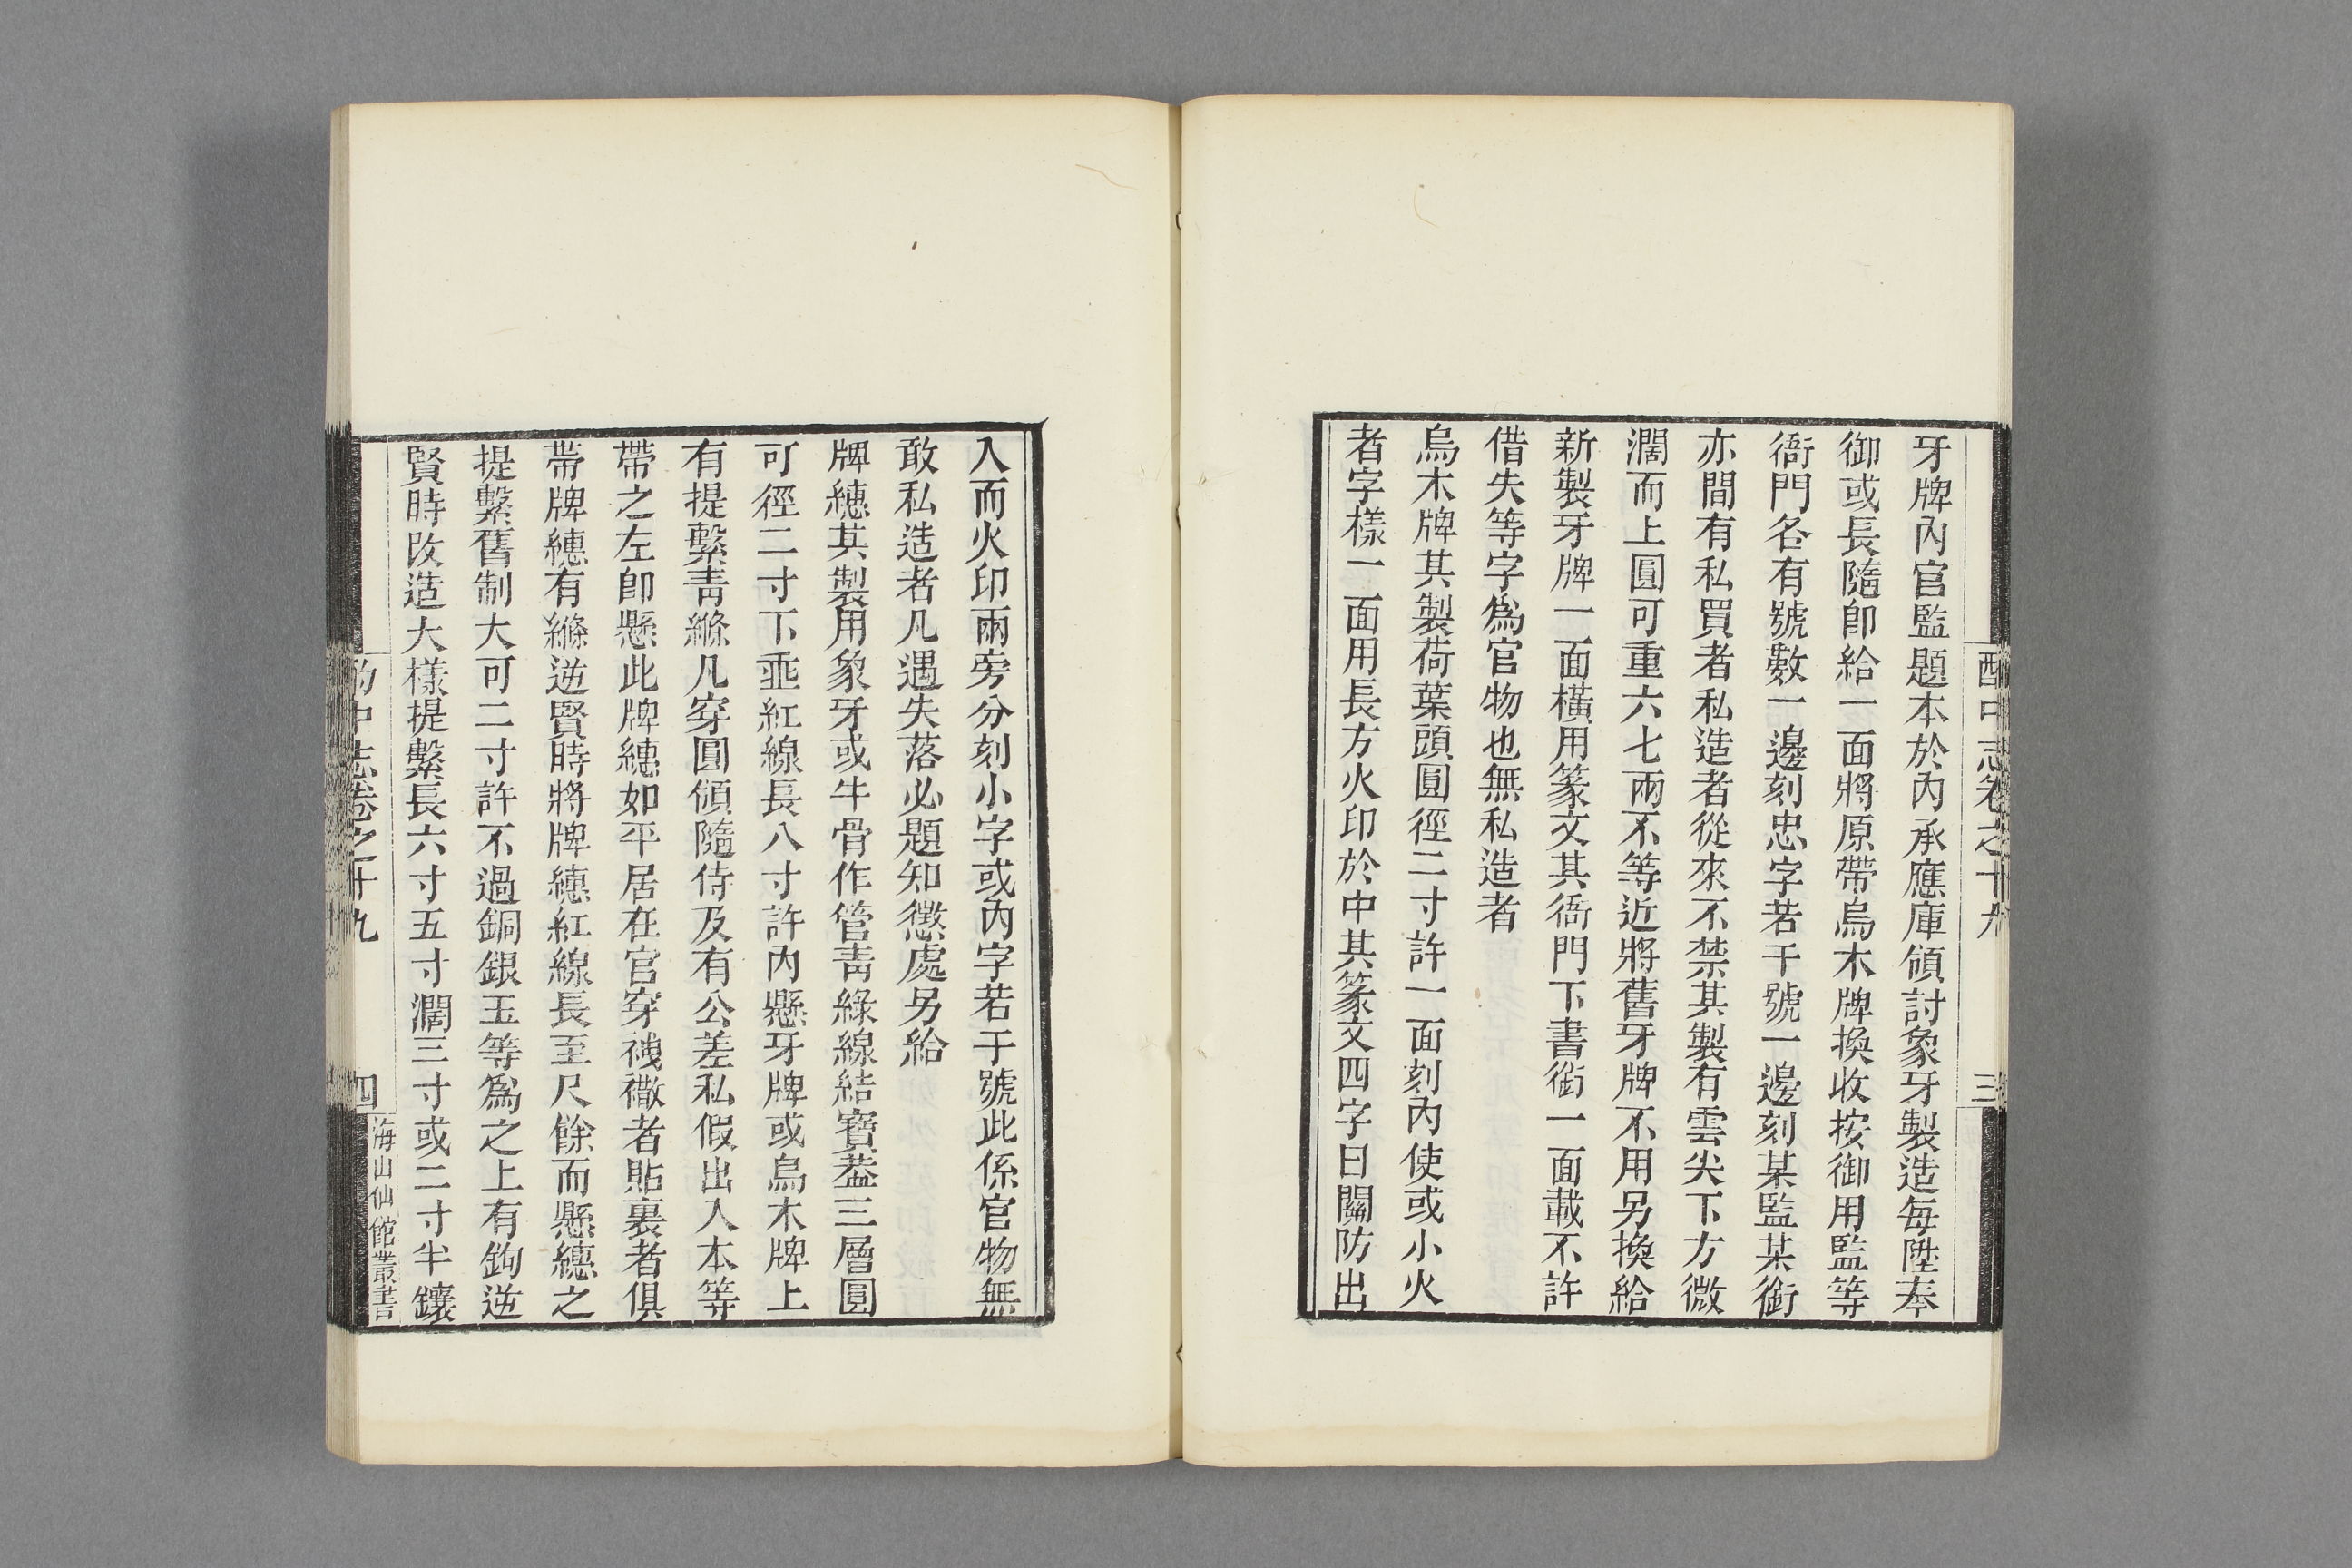 酌中志卷之十九
三
牙牌內官監題本於內承應庫領討象牙製造每陞奉
御或長隨卽給一面將原帶烏木牌換收按御用監等
衙門各有號數一邊刻忠字若干號一邊刻某監某銜
亦間有私買者私造者從來不禁其製有雲尖下方微
濶而上圓可重六七兩不等近將舊牙牌不用另換給
新製牙牌一面橫用篆文其衙門下書銜一面載不許
借失等字爲官物也無私造者
烏木牌其製荷葉頭圓徑二寸許一面刻內使或小火
者字樣一面用長方火印於中其篆文四字曰關防出
入而火印兩旁分刻小字或內字若干號此係官物無
敢私造者凡遇失落必題知懲處另給
牌繐其製用象牙或牛骨作管青綠線結寶葢三層圓
可徑二寸下垂紅線長八寸許內懸牙牌或烏木牌上
有提繫青縧凡穿圓領隨侍及有公差私假出入本等
帶之左卽懸此牌繐如平居在官穿𧞤𧝓者貼裏者俱
帶牌繐有縧逆賢時將牌繐紅線長至尺餘而懸繐之
提繫舊制大可二寸許不過銅銀玉等爲之上有鉤逆
賢時改造大樣提繫長六寸五寸濶三寸或二寸半鑲
酌中志卷之十九
四
海山仙館叢書